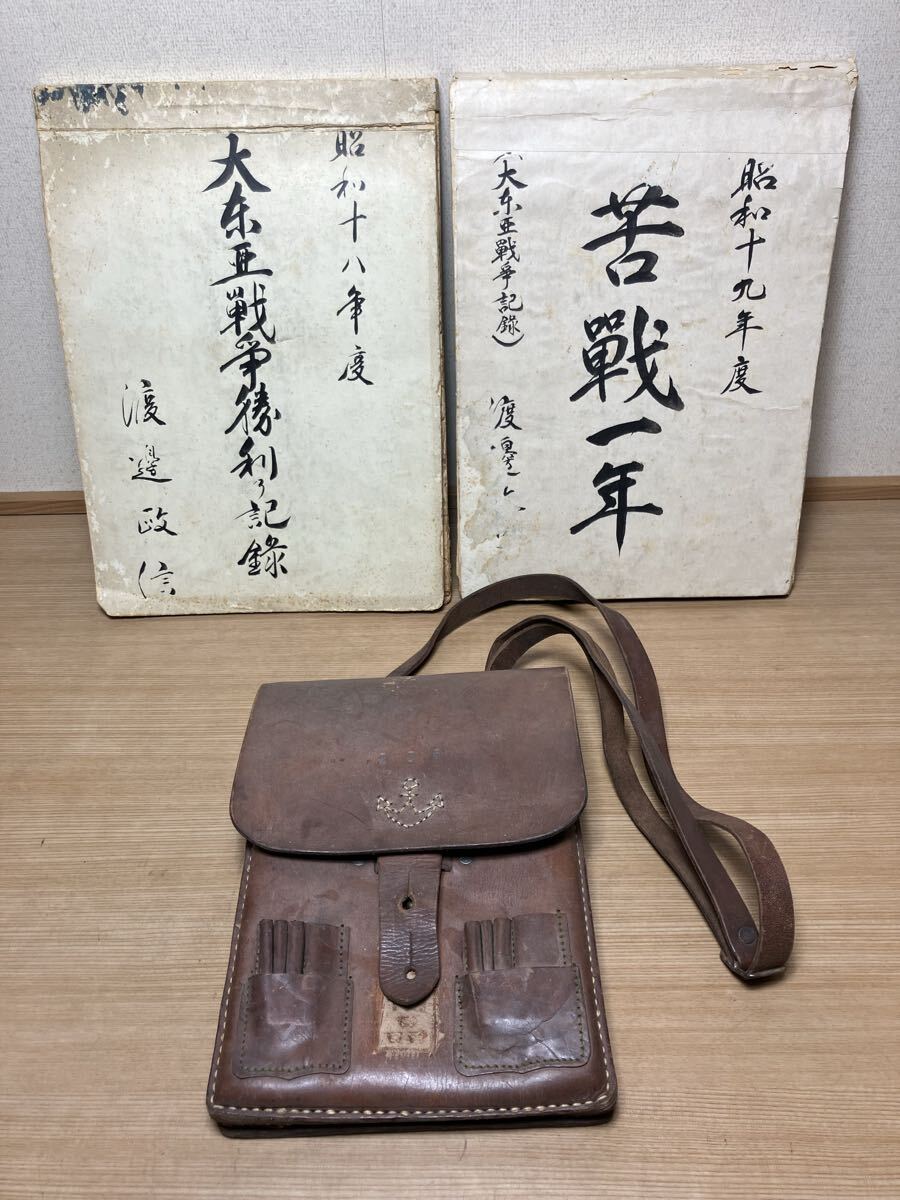 昭和十八年度
大东亜戦争勝利ノ記録
渡邉政信
昭和十九年度
苦戰一年
(大东亜戦争記録)
渡邉